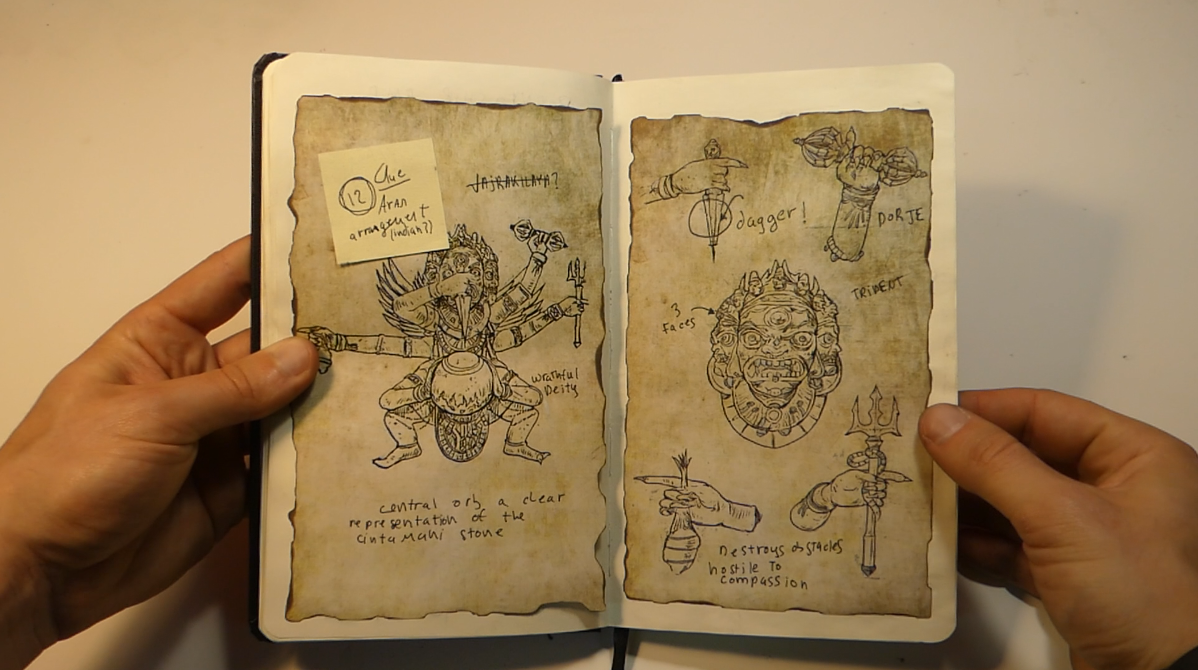 12
Clue
Aran
arrangement
(indian?)
VAJRAKILAYA?
wrathful
Deity
central orb a clear
representation of the
cintamani stone
dagger!
DORJE
TRIDENT
3
Faces
Destroys obstacles
hostile to
compassion